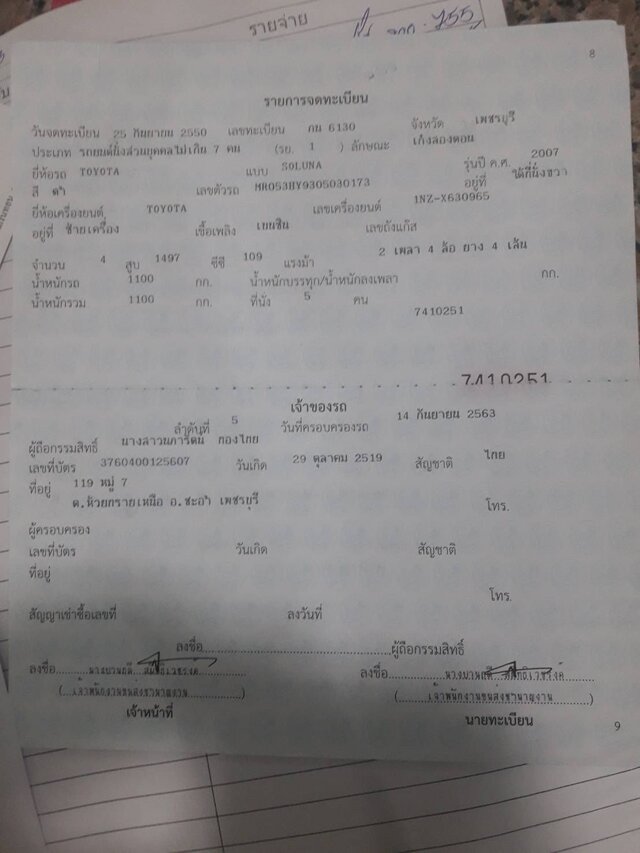 รายจ่าย
755
8
รายการจดทะเบียน
วันจดทะเบียน 25 กันยายน 2550 เลขทะเบียน กน 6130 จังหวัด เพชรบุรี
ประเภท รถยนต์นั่งส่วนบุคคลไม่เกิน 7 คน (รย. 1 ) ลักษณะ เก๋งสองตอน
ยี่ห้อรถ TOYOTA แบบ SOLUNA รุ่นปี ค.ศ. 2007
สี ดำ เลขตัวรถ MR053BY9305030173 อยู่ที่ ใต้ที่นั่งขวา
ยี่ห้อเครื่องยนต์ TOYOTA เลขเครื่องยนต์ 1NZ-X630965
อยู่ที่ ซ้ายเครื่อง เชื้อเพลิง เบนซิน เลขถังแก๊ส
จำนวน 4 สูบ 1497 ซีซี 109 แรงม้า 2 เพลา 4 ล้อ ยาง 4 เส้น
น้ำหนักรถ 1100 กก. น้ำหนักบรรทุก/น้ำหนักลงเพลา กก.
น้ำหนักรวม 1100 กก. ที่นั่ง 5 คน
7410251
7410251
เจ้าของรถ
ลำดับที่ 5 วันที่ครอบครองรถ 14 กันยายน 2563
ผู้ถือกรรมสิทธิ์ นางสาวนภารัตน์ ทองไทย
เลขที่บัตร 3760400125607 วันเกิด 29 ตุลาคม 2519 สัญชาติ ไทย
ที่อยู่ 119 หมู่ 7
ต.ห้วยทรายเหนือ อ.ชะอำ เพชรบุรี โทร.
ผู้ครอบครอง
เลขที่บัตร วันเกิด สัญชาติ
ที่อยู่
โทร.
สัญญาเช่าซื้อเลขที่ ลงวันที่
ลงชื่อ ผู้ถือกรรมสิทธิ์
ลงชื่อ ลงชื่อ
(เจ้าพนักงานขนส่งชำนาญงาน) (เจ้าพนักงานขนส่งชำนาญงาน)
เจ้าหน้าที่ นายทะเบียน
9